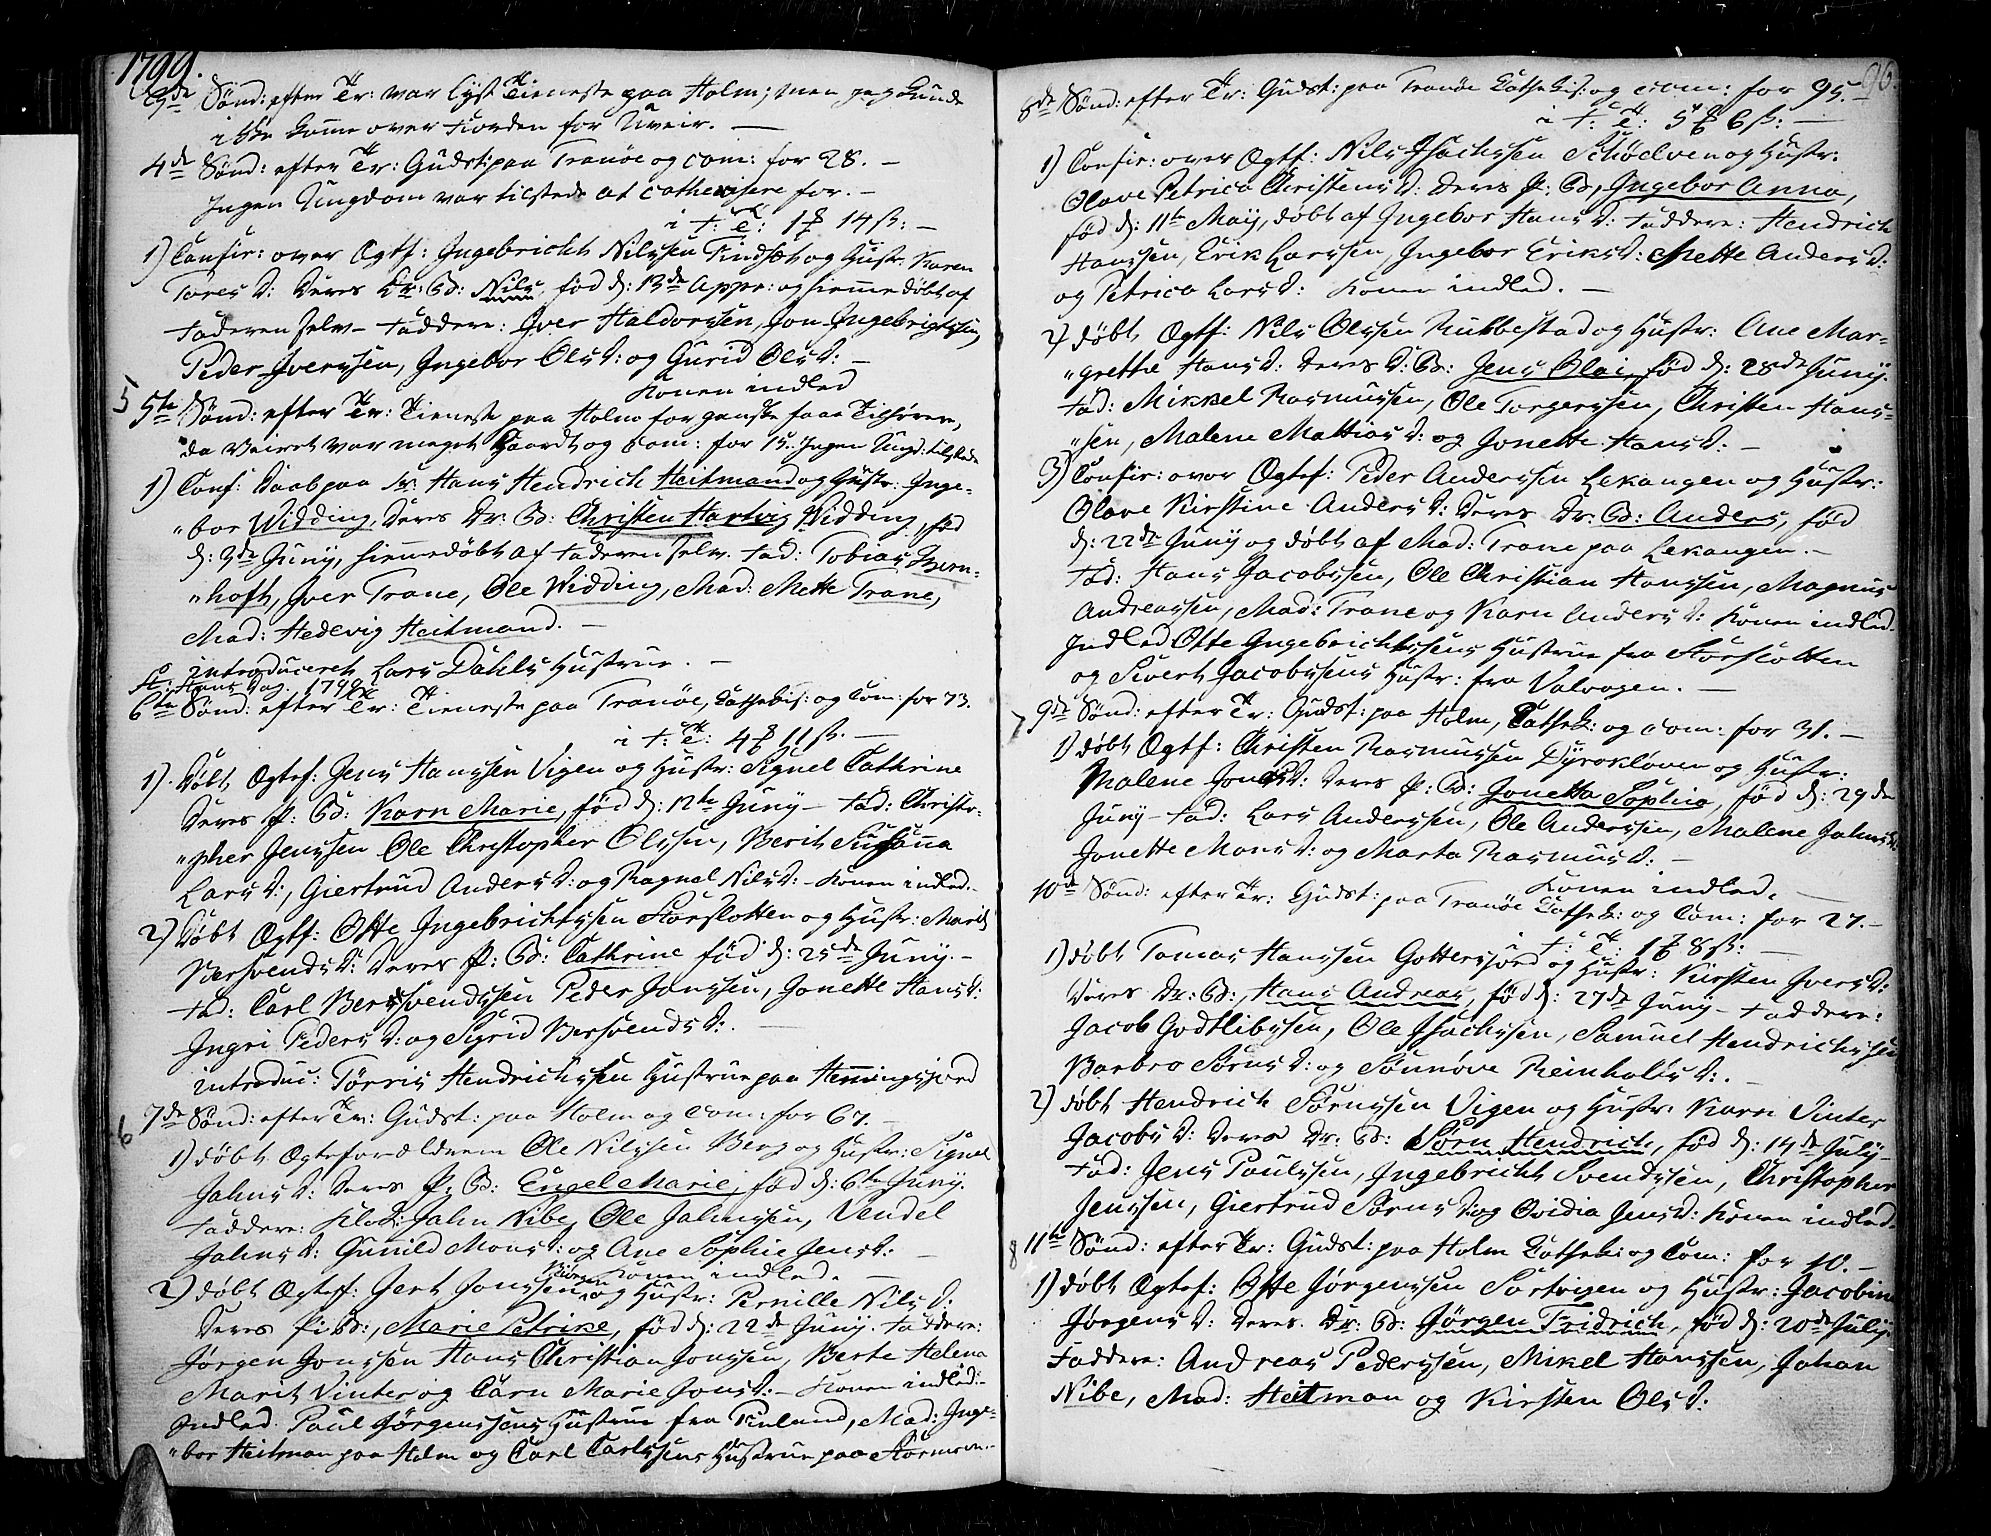 1799.
Sønd: efter Tr: var lyst Tieneste paa Holm; men jeg kunde
i komme over Fiorden for Uveir. —
4de Sønd: efter Tr: Gudst: paa Tranøe og Com: for 28. —
Ingen Ungdom var tilstede at cathechisere for. —
i T: C: 1 14 ß: —
1) Confir: over Ægtf: Ingebricht Nilssen Tindsæt og Hustr. Karen
Tores D: deres Dr: B: Nils, fød d: 13de Appr: og hiemmedøbt af
Faderen selv — Faddere: Iver Haldorssen, Jon Ingebrigtssen,
Peder Iverssen, Ingebor Ols D: og Gurid Ols D: —
Konen indled
5
5te Sønd: efter Tr: Tieneste paa Holm for ganske faae Tilhørere,
da Veiret var meget haardt og Com: for 15. Ingen Ungd: tilstede
1) Conf: Daab paa Sr. Hans Hendrich Heitmand og Hustr. Inge-
"bor Widding, deres Dr: B: Christen Hartvig Widding, fød
d: 3de Juny, hiemmedøbt af Faderen selv. Fad: Tobias Bern-
"hoft, Iver Trane, Ole Widding, Mad: Mette Trane,
Mad: Hedevig Heitmand. —
introduceret Lars Dahls Hustrue. —
St: Hans Dag. 1799
6te Sønd: efter Tr: Tieneste paa Tranöe, Cathekis: og Com: for 73.
i T: C: 4 11 ß. —
1). Døbt Ægtef: Jens Hanssen Vigen og Hustr: Signel Cathrine
deres P: B: Karn Marie, fød d: 12te Juny — Fad: Christo-
"pher Jenssen Ole Christopher Olssen, Berit Susanna
Lars D:, Giertrud Anders D: og Ragnel Nils D: — Konen indled. —
2) Døbt Ægtf: Otte Ingebrichtssen Storslotten og Hustr: Marit
Bersvends D: deres P: B: Cathrine fød d: 25de Juny. —
Fad: Carl Bersvendssen Peder Jonssen, Jonette Hans D:
Ingri Peders D: og Sigrid Bersvends D:. —
introduc: Törris Hendrichssen Hustrue paa Hemmingsjord
6 7de Sønd: efter Tr: Gudst: paa Holm og Com: for 67. —
1) døbt Ægteforældrene Ole Nilssen Berg og Hustr: Signel
Jahns D: deres P: B: Engel Marie, fød d: 6te Juny.
Faddere: Klok: Jahn Nibe, Ole Jahnssen, Vendel
Jahns D: Gunild Mons D: og Ane Sophie Jens D: —
Konen indled. —
2) døbt Ægtef: Gert Jonssen og Hustr: Pernille Nils D:
deres Pi: B:, Marie Petrike, fød d: 22de Juny. Faddere:
Jørgen Jonssen Hans Christian Jonssen, Berte Helena
Marit Vinter og Carn Marie Jons D: — Konen indled: —
Indled: Paul Jørgenssens Hustrue fra Finland, Mad: Inge-
"bor Heitman paa Holm og Carl Carlssens Hustrue paa
96.
8de Sønd: efter Tr: Gudst: paa Tranöe Cathekis: og Com: for 95.
i T: C: 5 6 ß: —
1) Confir: over Ægtf: Nils Isachssen Schøelven og Hustr:
Olave Petrica Christens D: deres P: B, Ingebor Anna,
fød d: 11te May, døbt af Ingebor Hans D: Faddere: Hendrich
Hanssen, Erik Larssen, Ingebor Eriks D: Mette Anders D:
og Petrica Lars D: Konen indled. —
2) døbt Ægtf: Nils Olssen Rubbestad og Hustr: Ane Mar-
"grethe Hans D: deres D: B: Jens Olai, fød d: 28de Juny.
Fad: Mikkel Rasmussen, Ole Torgerssen, Christen Hans-
"sen, Malene Mattias D: og Jonette Hans D: —
3) Confir: over Ægtef: Peder Anderssen Lekangen og Hustr:
Olave Kirstine Anders D: deres Dr: B: Anders, fød
d: 22de Juny og døbt af Mad: Trane paa Lekangen. —
Fad: Hans Jacobssen, Ole Christian Hanssen, Magnus
Andreassen, Mad: Trane og Karn Anders D: Konen indled.
Indled Otte Ingebrichtssens Hustrue fra Storslotten
og Sivert Jacobssens Hustr: fra Valvogen. —
7 9de Sønd: efter Tr: Gudst: paa Holm, Cathek: og Com: for 31. —
1) døbt Ægtf: Christen Rasmussen Dyrekløven og Hustr:
Malene Jons D: deres P: B: Jonetta Sophia, fød d: 29de
Juny — Fad: Lars Anderssen, Ole Anderssen, Malene Jahns D:
Jonette Mons D: og Marta Rasmus D: —
Konen indled. —
10de Sønd: efter Tr: Gudst: paa Tranöe Cathek: og Com: for 27. —
i T: C: 1 8 ß: —
1) døbt Tomas Hanssen Gottersjord og Hustr: Kirsten Ivers D:
deres Dr: B:, Hans Andreas, fød d: 27de Juny — Faddere:
Jacob Godtlibssen, Ole Isachssen, Samuel Hendrichssen
Barbro Sørns D: og Sünnöve Reinholts D:. —
2) døbt Hendrich Sørnssen Vigen og Hustr: Karn Vinter
Jacobs D: deres Dr: B: Sørn Hendrich, fød d: 14de July —
Fad: Jens Paulssen, Ingebricht Svendssen, Christopher
Jenssen, Giertrud Sørns D: og Ovidia Jens D: Konen indled.
8 11te Sønd: efter Tr: Gudst: paa Holm Cathek: og Com: for 10. —
1) døbt Ægtef: Otte Jørgenssen Sørtvigen og Hustr: Jacobina
Jørgens D: deres Dr: B: Jørgen Fridrich, fød d: 20de July.
Faddere: Andreas Pederssen, Mikel Hanssen, Johan
Nibe, Mad: Heitman og Kirsten Ols D: